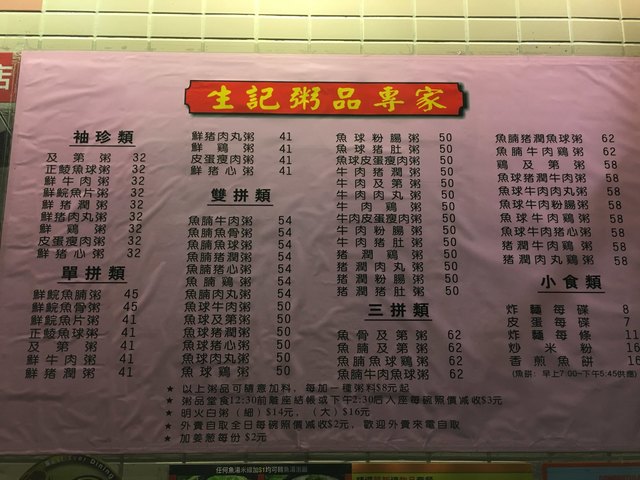 店
生記粥品專家
袖珍類
及第粥 32
正鯪魚球粥 32
鮮牛肉粥 32
鮮鯇魚片粥 32
鮮豬潤粥 32
鮮猪肉丸粥 32
鮮鷄粥 32
皮蛋瘦肉粥 32
鮮猪心粥 32
單拼類
鮮鯇魚腩粥 45
鮮鯇魚骨粥 45
鮮鯇魚片粥 41
正鯪魚球粥 41
及第粥 41
鮮牛肉粥 41
鮮豬潤粥 41
鮮猪肉丸粥 41
鮮鷄粥 41
皮蛋瘦肉粥 41
鮮猪心粥 41
雙拼類
魚腩牛肉粥 54
魚腩魚骨粥 54
魚腩魚球粥 54
魚腩猪潤粥 54
魚腩猪心粥 54
魚腩鷄粥 54
魚腩肉丸粥 54
魚球牛肉粥 50
魚球及第粥 50
魚球猪潤粥 50
魚球猪心粥 50
魚球肉丸粥 50
魚球鷄粥 50
魚球粉腸粥 50
魚球猪肚粥 50
魚球皮蛋瘦肉粥 50
牛肉猪潤粥 50
牛肉及第粥 50
牛肉肉丸粥 50
牛肉鷄粥 50
牛肉皮蛋瘦肉粥 50
牛肉粉腸粥 50
牛肉猪肚粥 50
猪潤鷄粥 50
猪潤肉丸粥 50
猪潤粉腸粥 50
猪潤猪肚粥 50
三拼類
魚骨及第粥 62
魚腩及第粥 62
魚腩魚球鷄粥 62
魚腩牛肉魚球粥 62
魚腩猪潤魚球粥 62
魚腩牛肉鷄粥 62
鷄及第粥 58
魚球猪潤牛肉粥 58
魚球牛肉肉丸粥 58
魚球牛肉粉腸粥 58
魚球牛肉鷄粥 58
魚球牛肉猪心粥 58
猪潤牛肉鷄粥 58
猪潤肉丸鷄粥 58
小食類
炸麵每碟 8
皮蛋每碟 7
炸麵每條 11
炒米粉 16
香煎魚餅 16
(魚餅：早上7:00~下午5:45供應)
★ 以上粥品可隨意加料，每加一種粥料$8元起
★ 粥品堂食12:30前離座結帳或下午2:30后入座每碗照價减收$3元
★ 明火白粥（細）$14元，（大）$16元
★ 外賣自取全日每碗照價减收$2元，歡迎外賣來電自取
★ 加姜葱每份 $2元
任何魚湯米線加$1均可轉魚湯粥底